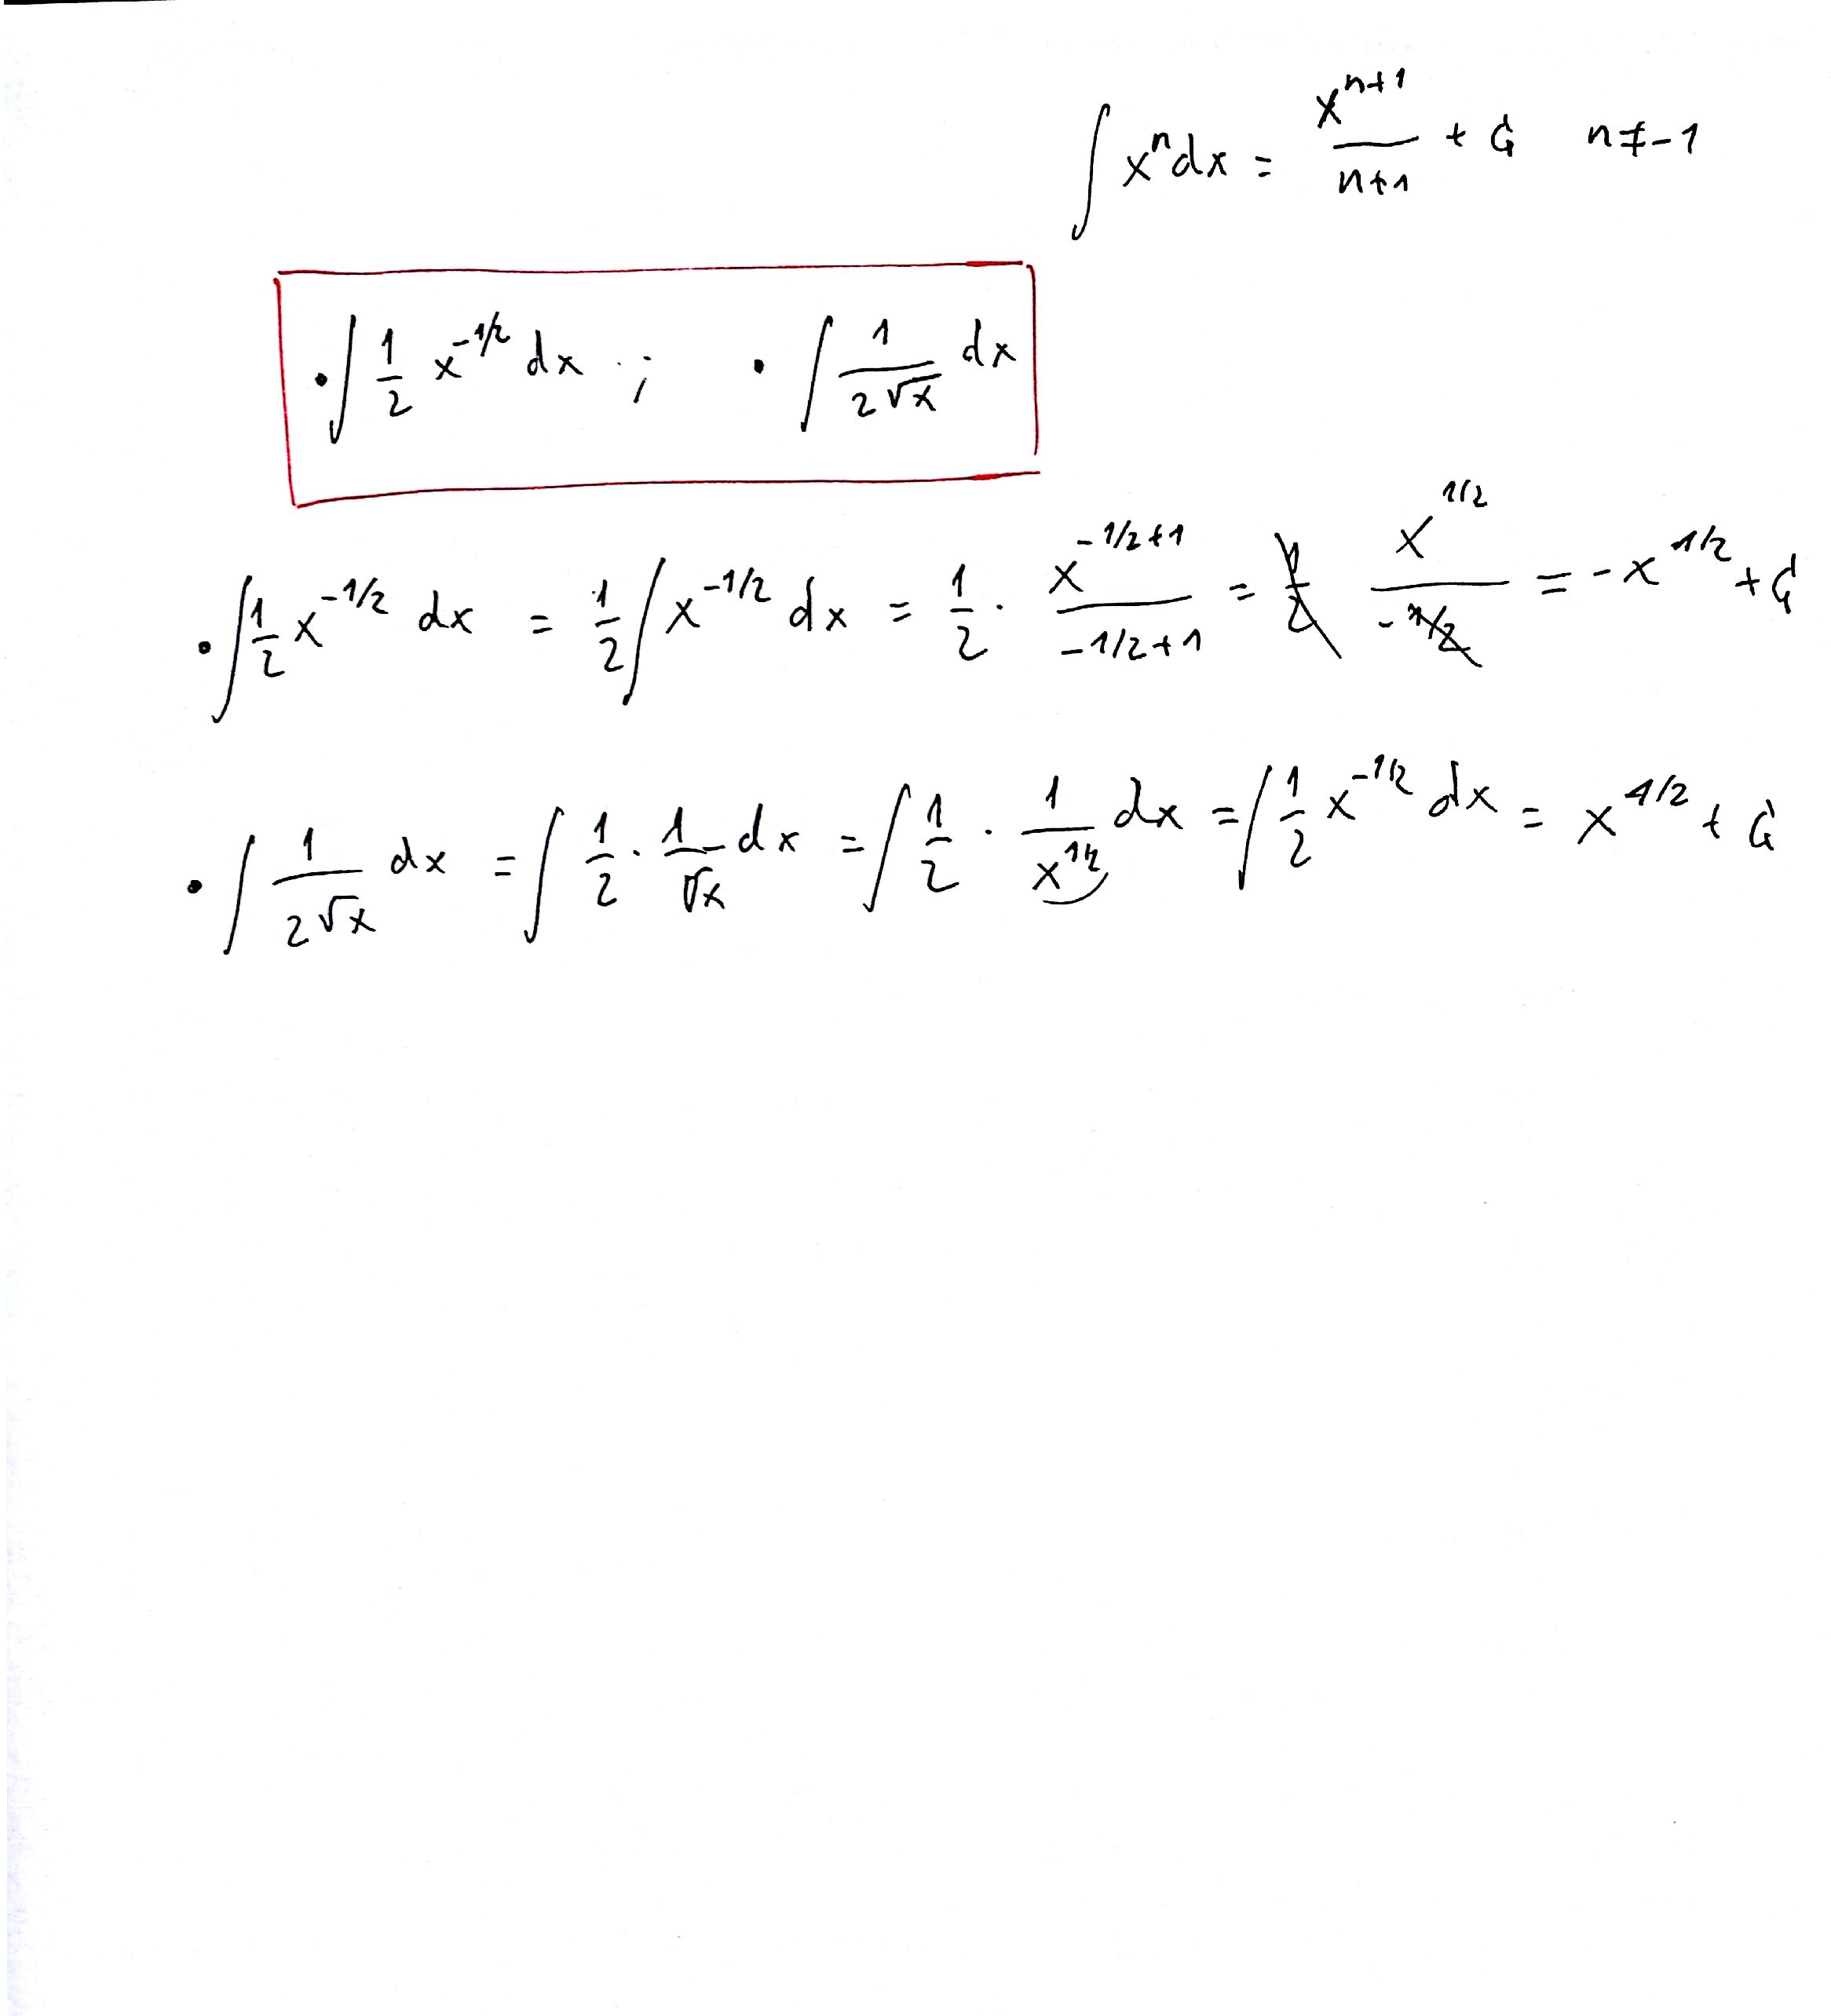 ∫ xⁿ dx = xⁿ⁺¹/(n+1) + C   n ≠ -1
• ∫ 1/2 x^(-1/2) dx ;   • ∫ 1/(2√x) dx
• ∫ 1/2 x^(-1/2) dx = 1/2 ∫ x^(-1/2) dx = 1/2 · x^(-1/2+1)/(-1/2+1) = 1/2 x^(1/2)/(-1/2) = -x^(1/2) + C
• ∫ 1/(2√x) dx = ∫ 1/2 · 1/√x dx = ∫ 1/2 · 1/x^(1/2) dx = ∫ 1/2 x^(-1/2) dx = x^(1/2) + C